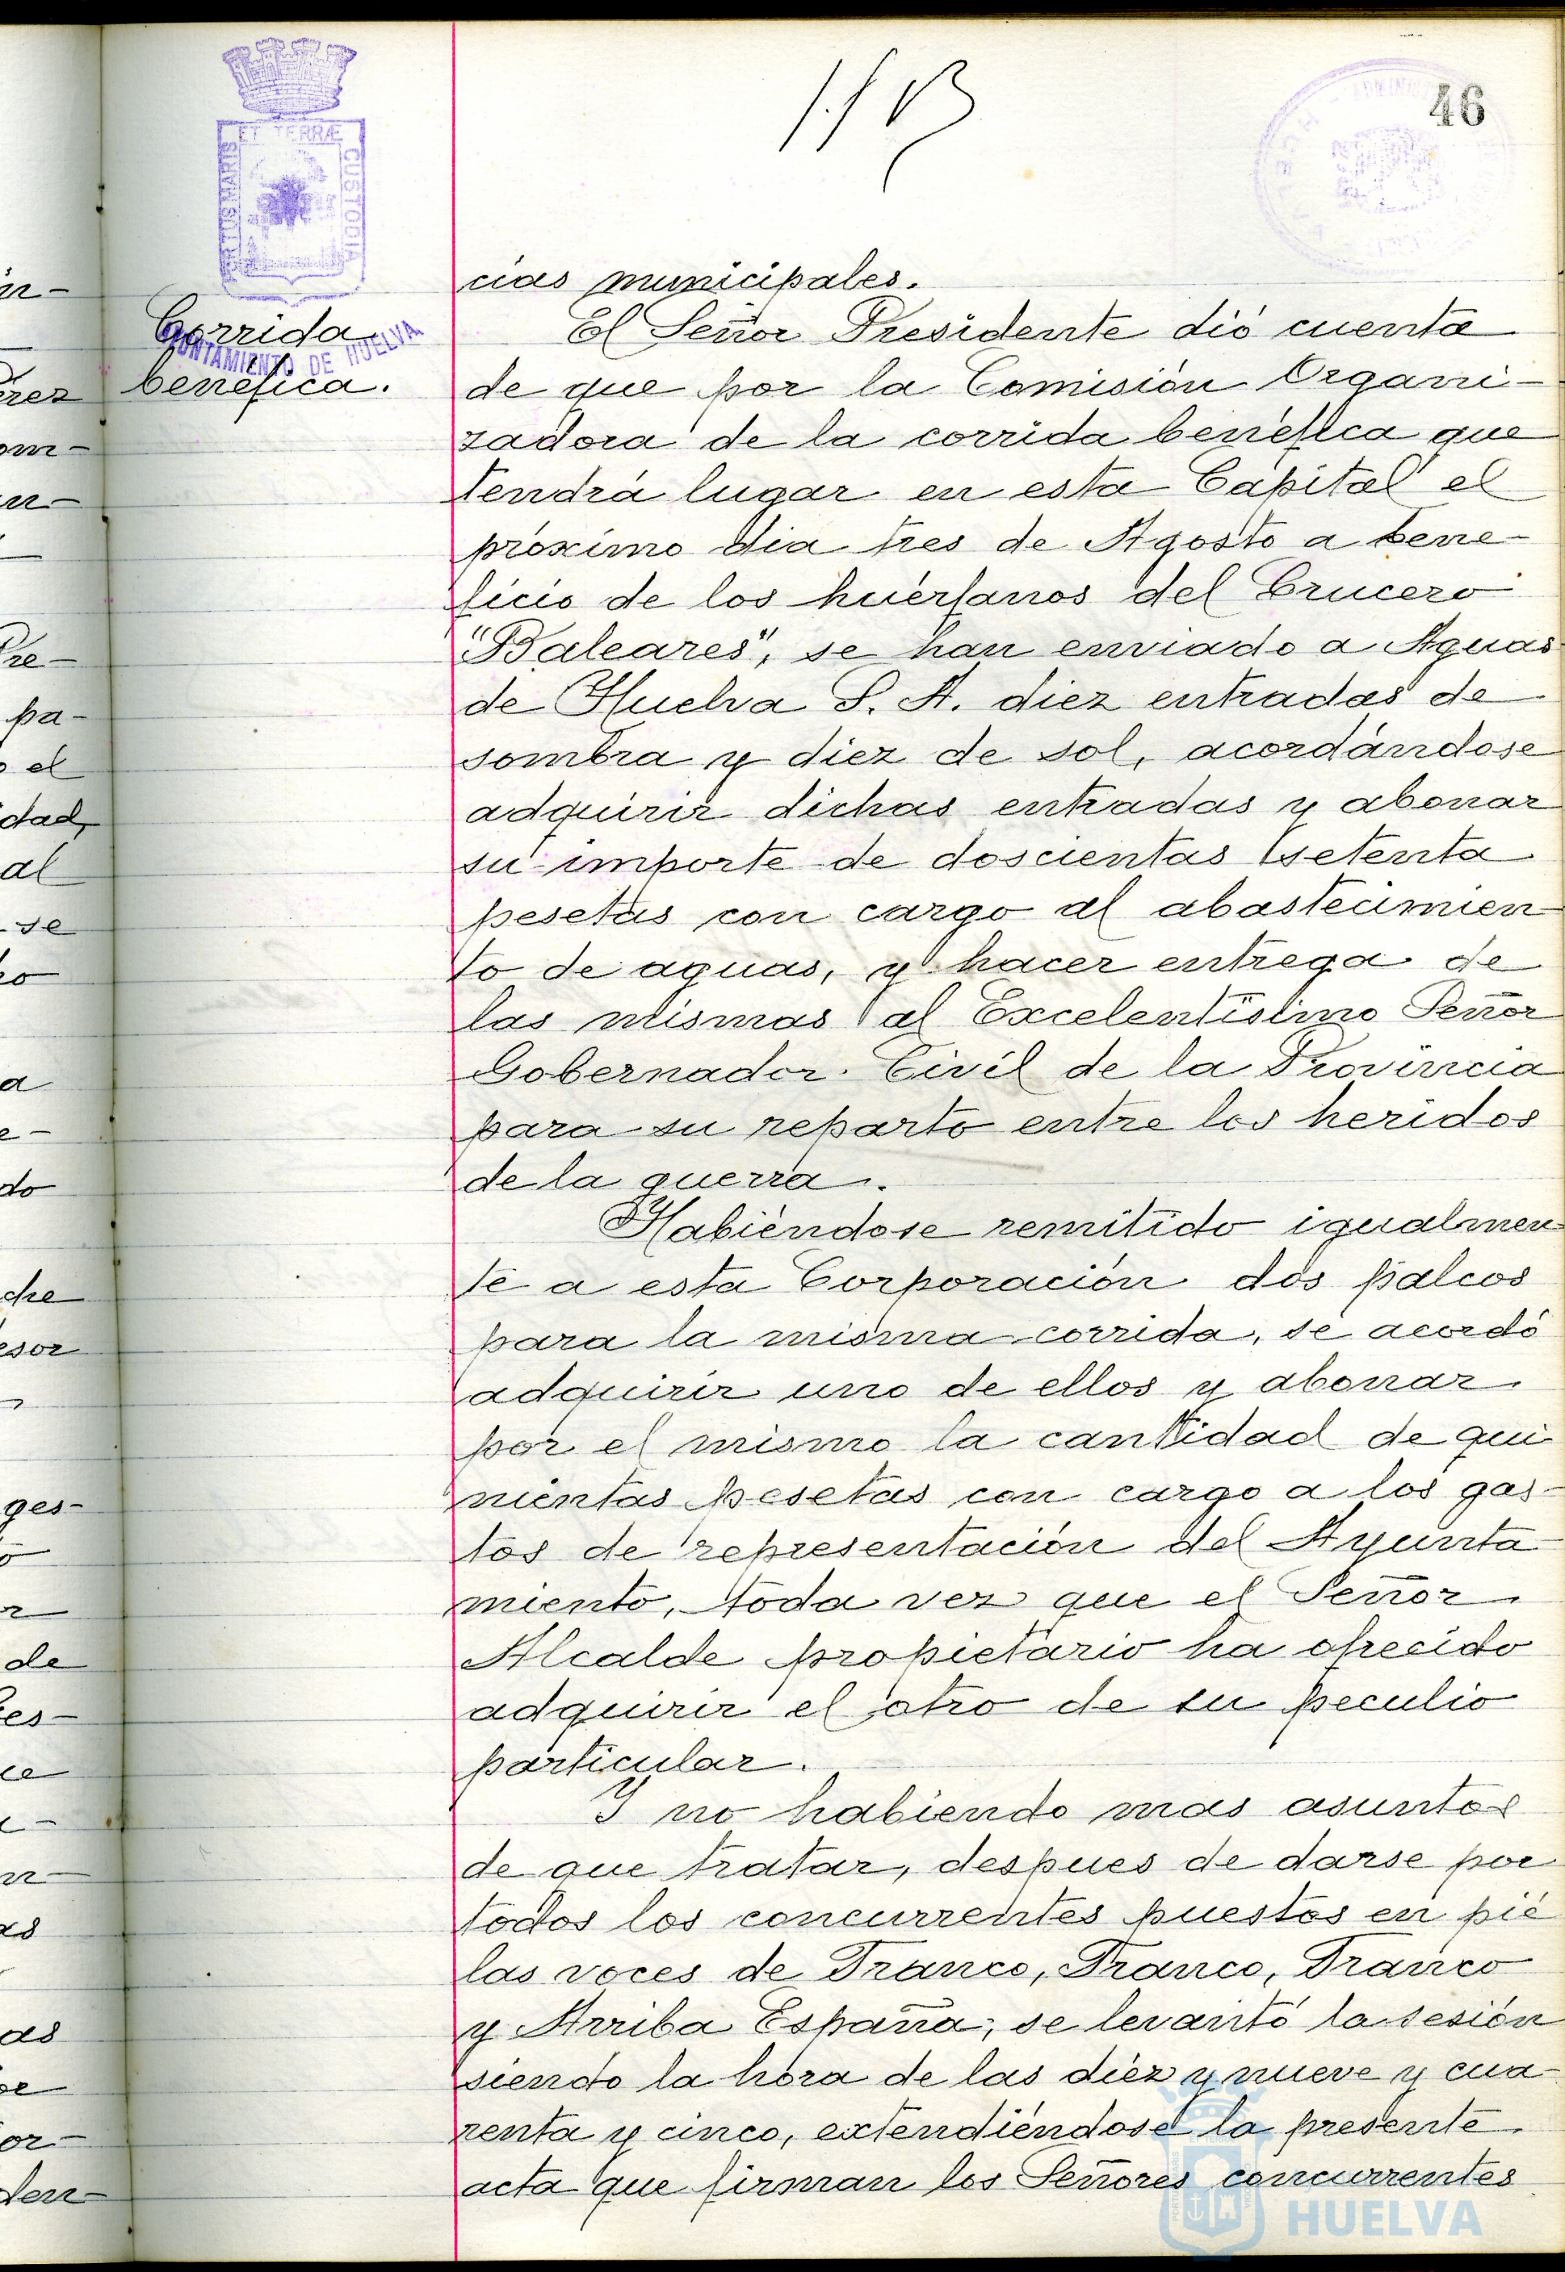 46
PORTUS MARIS ET TERRÆ CUSTODIA
AYUNTAMIENTO DE HUELVA
Corrida
benéfica.
cias municipales.
El Señor Presidente dió cuenta
de que por la Comisión Organi-
zadora de la corrida benéfica que
tendrá lugar en esta Capital el
próximo dia tres de Agosto a bene-
ficio de los huérfanos del Crucero
"Baleares", se han enviado a Aguas
de Huelva S. A. diez entradas de
sombra y diez de sol, acordándose
adquirir dichas entradas y abonar
su importe de doscientas setenta
pesetas con cargo al abastecimien
to de aguas, y hacer entrega de
las mismas al Excelentísimo Señor
Gobernador Civil de la Provincia
para su reparto entre los heridos
de la guerra.
Habiéndose remitido igualmen
te a esta Corporación dos palcos
para la misma corrida, se acordó
adquirir uno de ellos y abonar
por el mismo la cantidad de qui
nientas pesetas con cargo a los gas-
tos de representación del Ayunta
miento, toda vez que el Señor
Alcalde propietario ha ofrecido
adquirir el otro de su peculio
particular.
Y no habiendo mas asuntos
de que tratar, despues de darse por
todos los concurrentes puestos en pié
las voces de Franco, Franco, Franco
y Arriba España, se levantó la sesión
siendo la hora de las diez y nueve y cua-
renta y cinco, extendiéndose la presente
acta que firman los Señores concurrentes
HUELVA